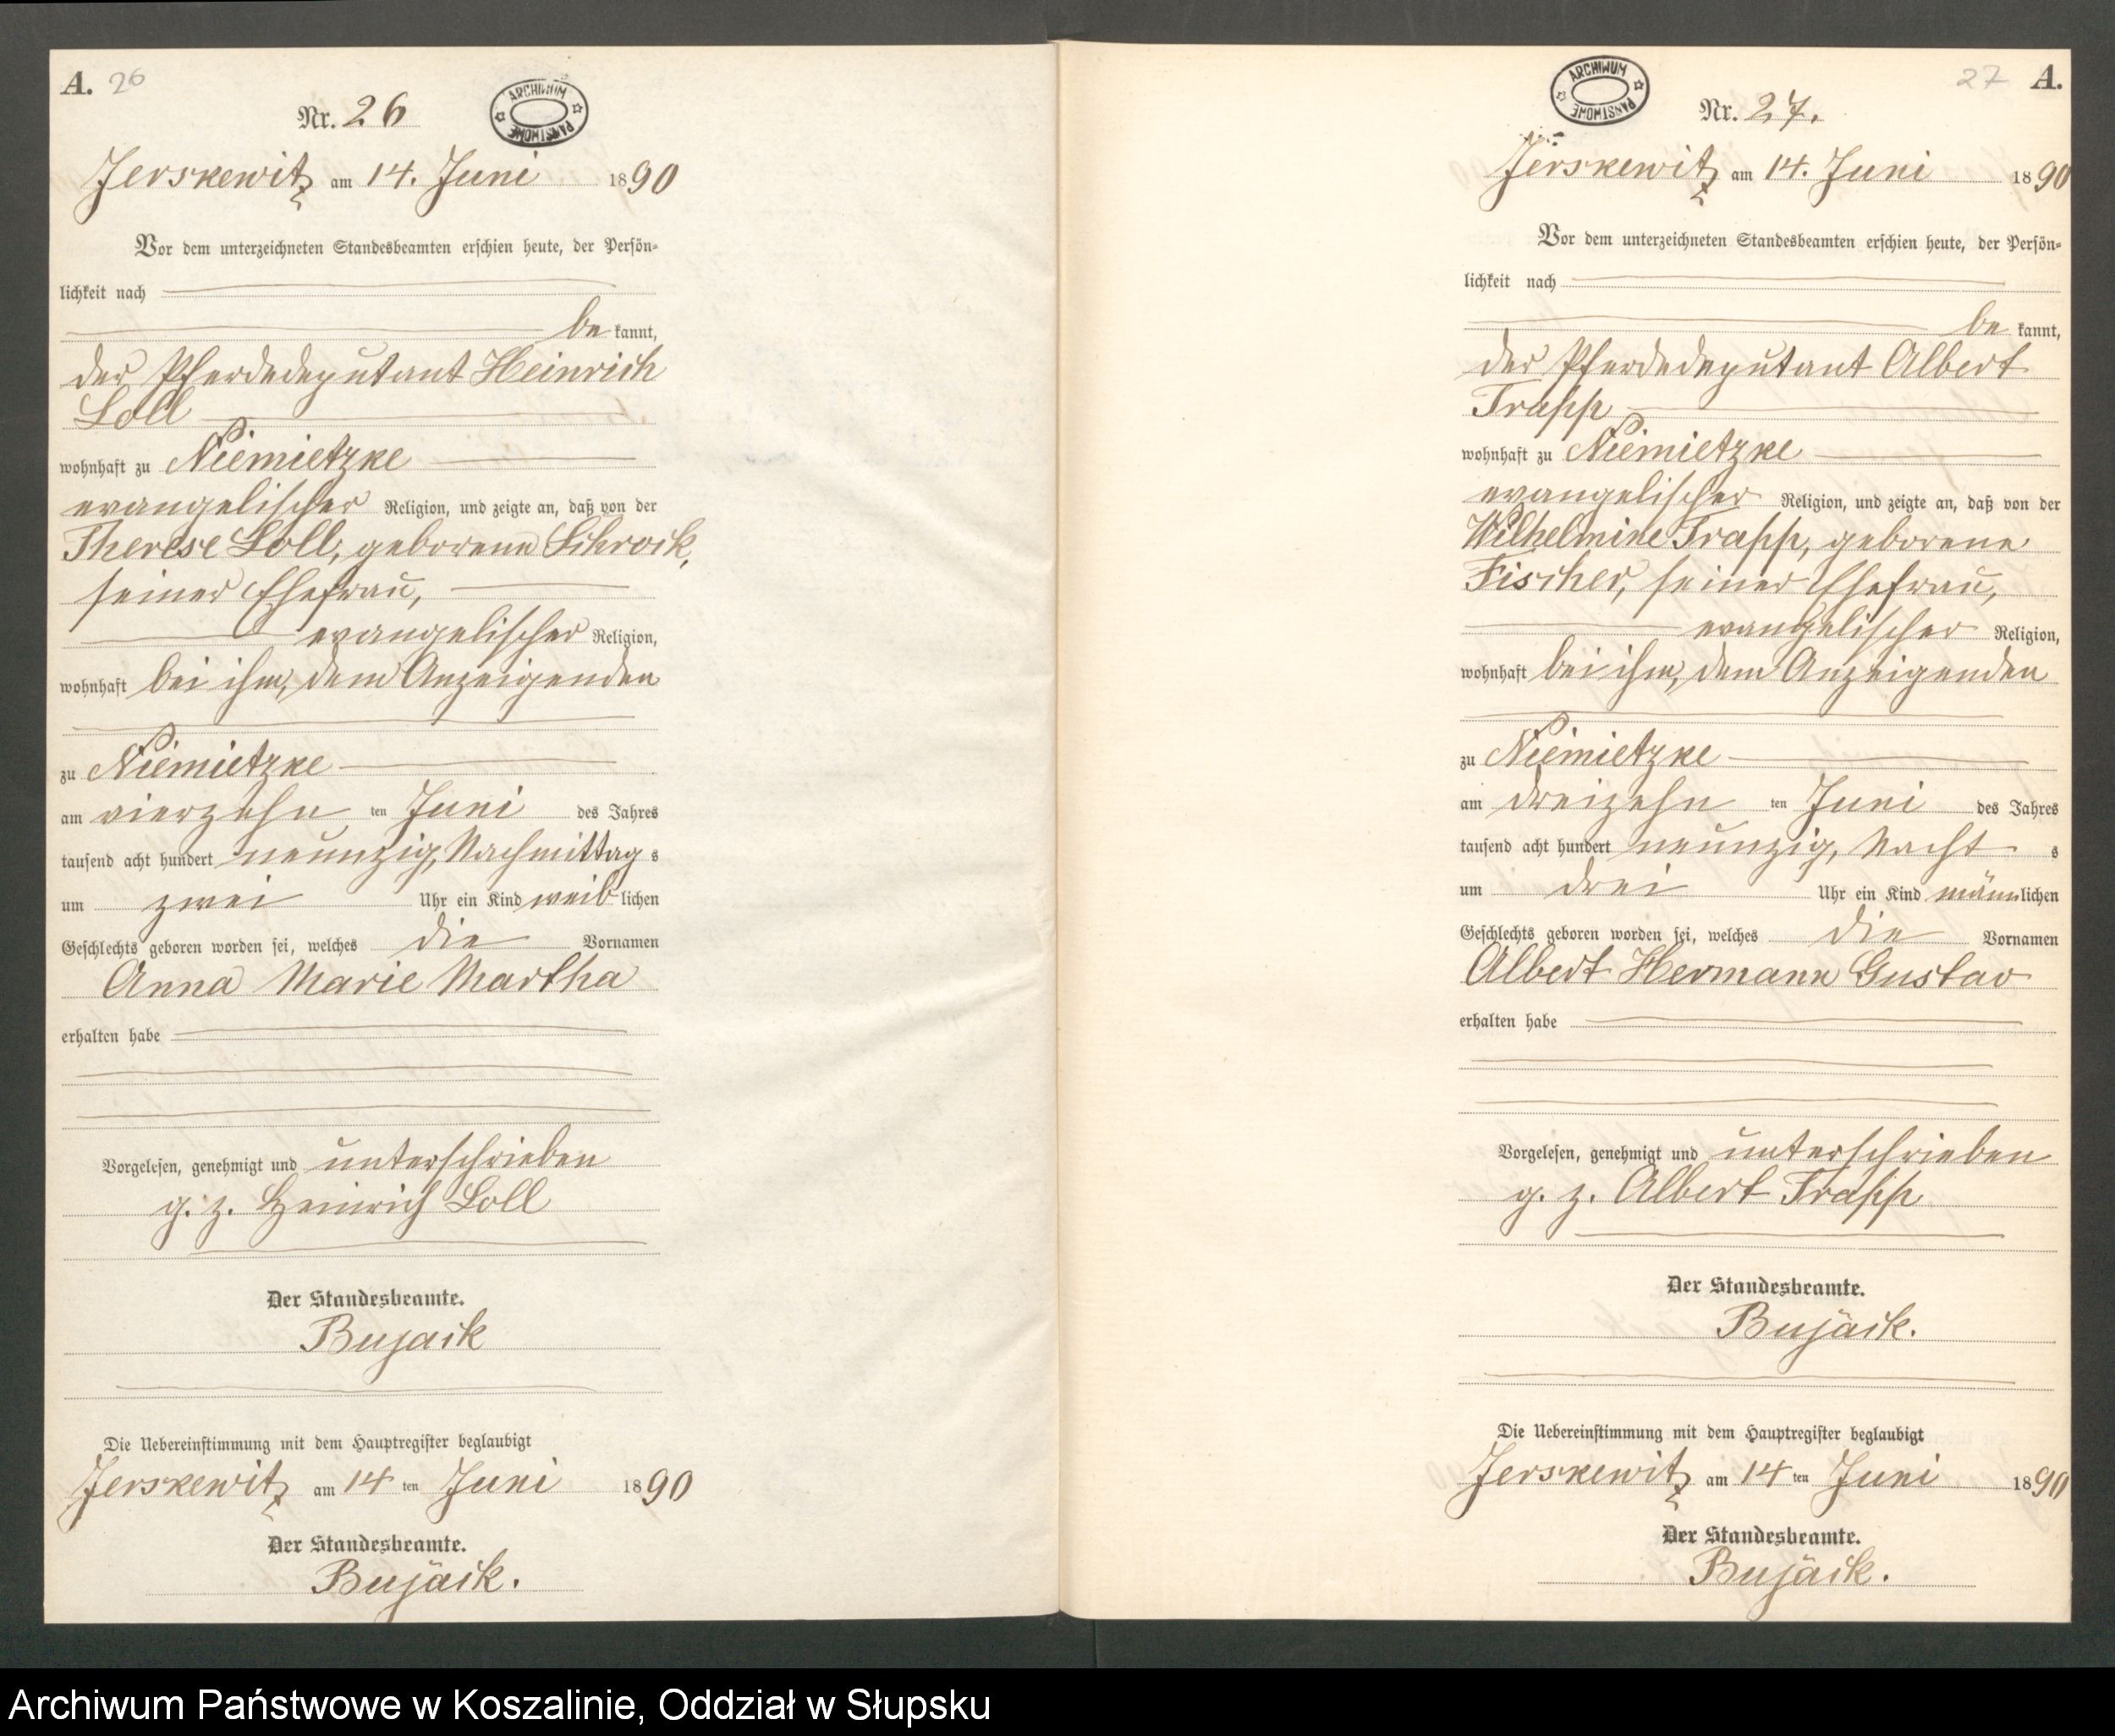 A. 26
Nr. 26
ARCHIWUM PAŃSTWOWE
Jerskewitz am 14. Juni 1890
Vor dem unterzeichneten Standesbeamten erschien heute, der Persön-
lichkeit nach
be kannt,
der Pferdedeputant Heinrich
Loll
wohnhaft zu Niemietzke
evangelischer Religion, und zeigte an, daß von der
Therese Loll, geborene Schrock,
seiner Ehefrau,
evangelischer Religion,
wohnhaft bei ihm, dem Anzeigenden
zu Niemietzke
am vierzehn ten Juni des Jahres
tausend acht hundert neunzig, Nachmittag s
um zwei Uhr ein Kind weib lichen
Geschlechts geboren worden sei, welches die Vornamen
Anna Marie Martha
erhalten habe
Vorgelesen, genehmigt und unterschrieben
g. z. Heinrich Loll
Der Standesbeamte.
Bujack
Die Uebereinstimmung mit dem Hauptregister beglaubigt
Jerskewitz am 14 ten Juni 1890
Der Standesbeamte.
Bujäck.
27 A.
ARCHIWUM PAŃSTWOWE
Nr. 27.
Jerskewitz am 14. Juni 1890
Vor dem unterzeichneten Standesbeamten erschien heute, der Persön-
lichkeit nach
be kannt,
der Pferdedeputant Albert
Trapp
wohnhaft zu Niemietzke
evangelischer Religion, und zeigte an, daß von der
Wilhelmine Trapp, geborene
Fischer, seiner Ehefrau,
evangelischer Religion,
wohnhaft bei ihm, dem Anzeigenden
zu Niemietzke
am dreizehn ten Juni des Jahres
tausend acht hundert neunzig, Nacht s
um drei Uhr ein Kind männlichen
Geschlechts geboren worden sei, welches die Vornamen
Albert Hermann Gustav
erhalten habe
Vorgelesen, genehmigt und unterschrieben
g. z. Albert Trapp
Der Standesbeamte.
Bujäck.
Die Uebereinstimmung mit dem Hauptregister beglaubigt
Jerskewitz am 14 ten Juni 1890
Der Standesbeamte.
Bujäck.
Archiwum Państwowe w Koszalinie, Oddział w Słupsku